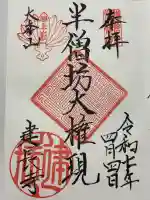 奉拝
令和七年
四月四日
半僧坊大権現
大本山
建長寺